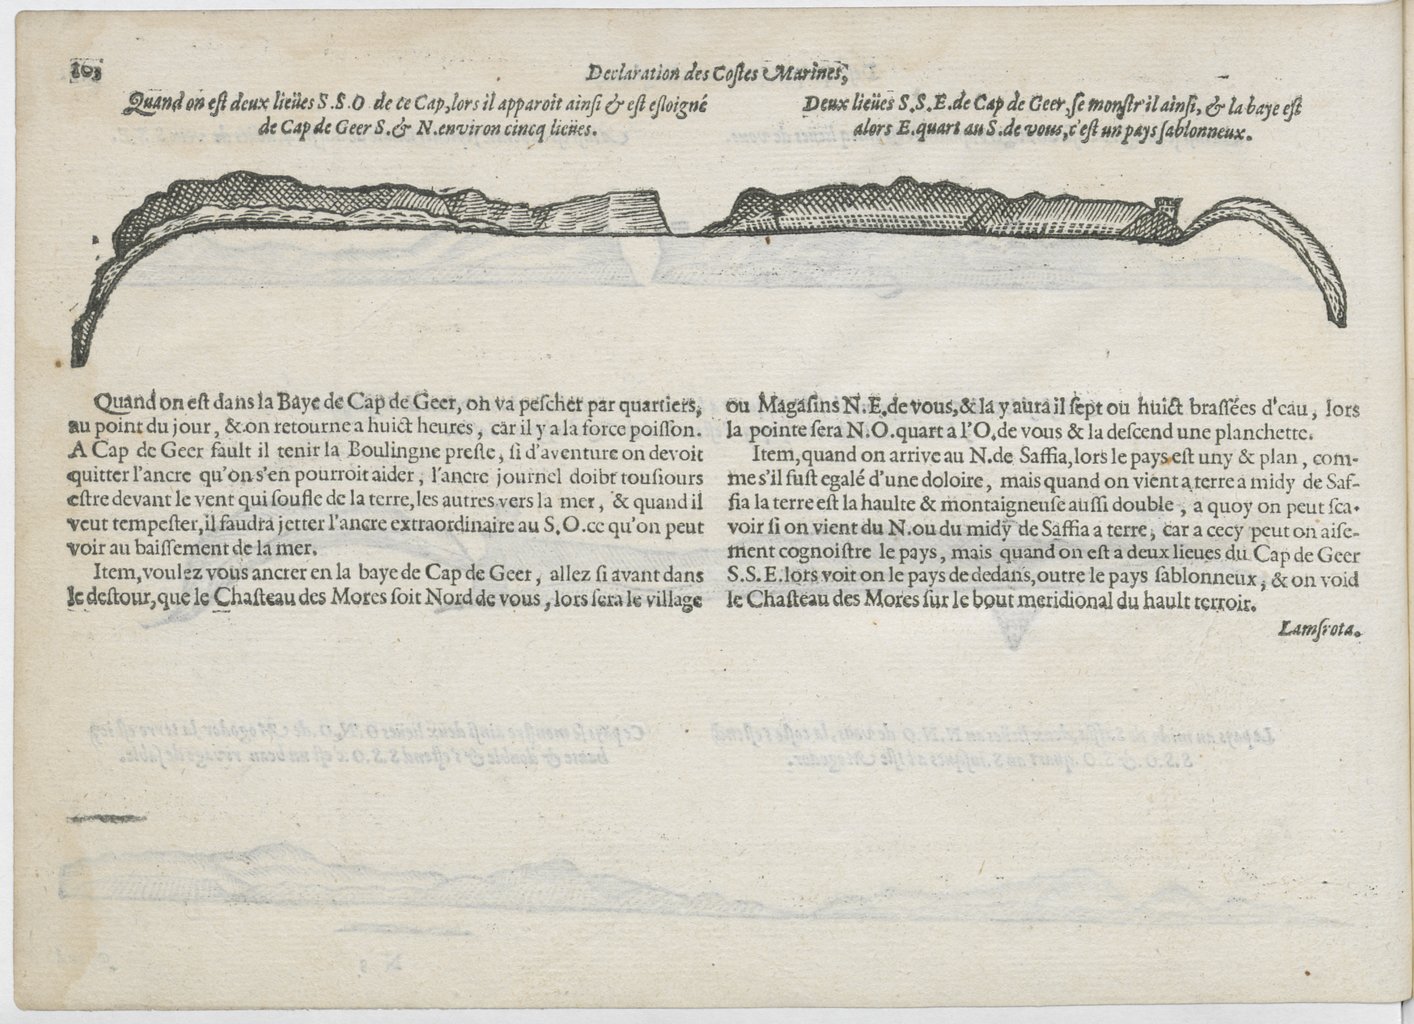 103
Declaration des Costes Marines,
Quand on est deux lieües S.S.O de ce Cap, lors il apparoit ainsi & est esloigné
de Cap de Geer S. & N. environ cincq lieües.
Deux lieües S.S.E. de Cap de Geer, se monstr'il ainsi, & la baye est
alors E. quart au S. de vous, c'est un pays sablonneux.
Quand on est dans la Baye de Cap de Geer, on va pescher par quartiers,
au point du jour, & on retourne a huict heures, car il y a la force poisson.
A Cap de Geer fault il tenir la Boulingne preste, si d'aventure on devoit
quitter l'ancre qu'on s'en pourroit aider, l'ancre journel doibt tousiours
estre devant le vent qui soufle de la terre, les autres vers la mer, & quand il
veut tempester, il faudra jetter l'ancre extraordinaire au S.O. ce qu'on peut
voir au baissement de la mer.
Item, voulez vous ancrer en la baye de Cap de Geer, allez si avant dans
le destour, que le Chasteau des Mores soit Nord de vous, lors sera le village
ou Magasins N.E. de vous, & la y aura il sept ou huict brassées d'eau, lors
la pointe sera N.O. quart a l'O. de vous & la descend une planchette.
Item, quand on arrive au N. de Saffia, lors le pays est uny & plan, com-
me s'il fust egalé d'une doloire, mais quand on vient a terre a midy de Saf-
fia la terre est la haulte & montaigneuse aussi double, a quoy on peut sca-
voir si on vient du N. ou du midy de Saffia a terre, car a cecy peut on aise-
ment cognoistre le pays, mais quand on est a deux lieues du Cap de Geer
S.S.E. lors voit on le pays de dedans, outre le pays sablonneux, & on void
le Chasteau des Mores sur le bout meridional du hault terroir.
Lamsrota.